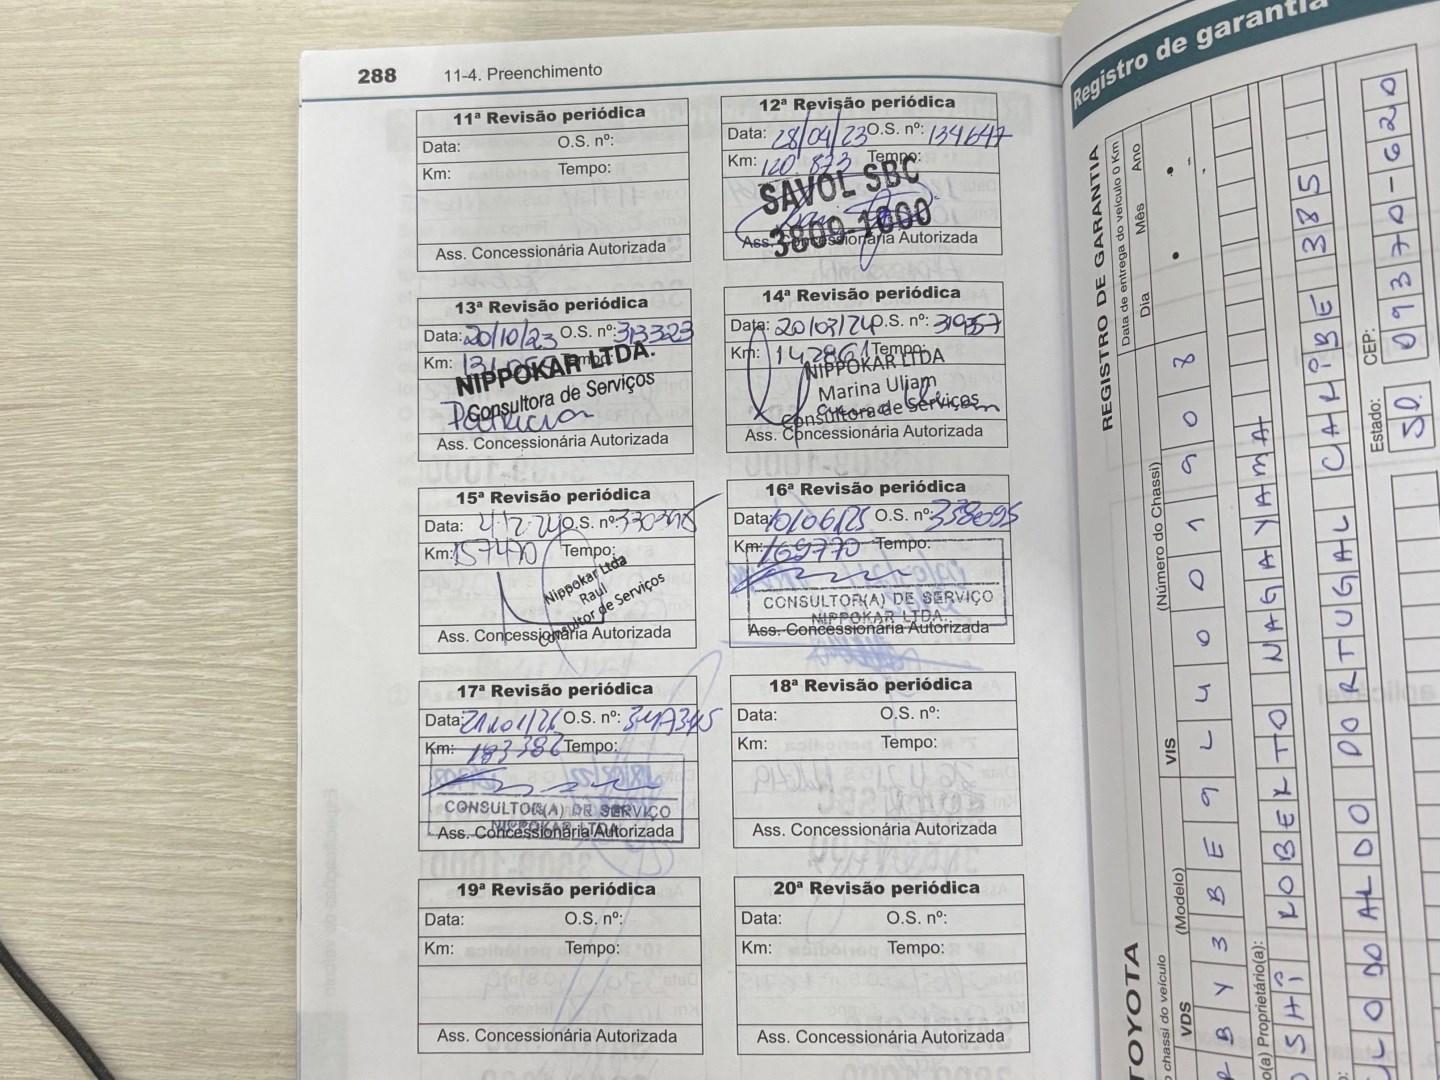 288 11-4. Preenchimento
11ª Revisão periódica
Data: O.S. nº:
Km: Tempo:
Ass. Concessionária Autorizada
12ª Revisão periódica
Data: 28/04/23 O.S. nº: 134647
Km: 120.873 Tempo:
SAVOL SBC
3809-1000
Ass. Concessionária Autorizada
13ª Revisão periódica
Data: 20/10/23 O.S. nº: 313323
Km: Tempo:
NIPPOKAR LTDA.
Consultora de Serviços
Patricia
Ass. Concessionária Autorizada
14ª Revisão periódica
Data: 20/03/24 O.S. nº: 319357
Km: 142861 Tempo:
NIPPOKAR LTDA
Marina Uliam
Consultora de Serviços
Ass. Concessionária Autorizada
15ª Revisão periódica
Data: 4.12.24 O.S. nº: 330345
Km: 157470 Tempo:
Nippokar Ltda
Raul
Consultor de Serviços
Ass. Concessionária Autorizada
16ª Revisão periódica
Data: 10/06/25 O.S. nº: 338095
Km: 169770 Tempo:
CONSULTOR(A) DE SERVIÇO
NIPPOKAR LTDA.
Ass. Concessionária Autorizada
17ª Revisão periódica
Data: 21/01/26 O.S. nº: 347345
Km: 183386 Tempo:
CONSULTOR(A) DE SERVIÇO
NIPPOKAR LTDA.
Ass. Concessionária Autorizada
18ª Revisão periódica
Data: O.S. nº:
Km: Tempo:
Ass. Concessionária Autorizada
19ª Revisão periódica
Data: O.S. nº:
Km: Tempo:
Ass. Concessionária Autorizada
20ª Revisão periódica
Data: O.S. nº:
Km: Tempo:
Ass. Concessionária Autorizada
Registro de garantia
TOYOTA REGISTRO DE GARANTIA
chassi do veículo (Modelo) (Número do Chassi) Data de entrega do veículo 0 Km
VDS VIS Dia Mês Ano
BY3BE9L40019908
(a) Proprietário(a):
SHI ROBERTO NAGAYAMA
CLODOALDO PORTUGAL CARIBE 385
Estado: SP. CEP: 09370-620